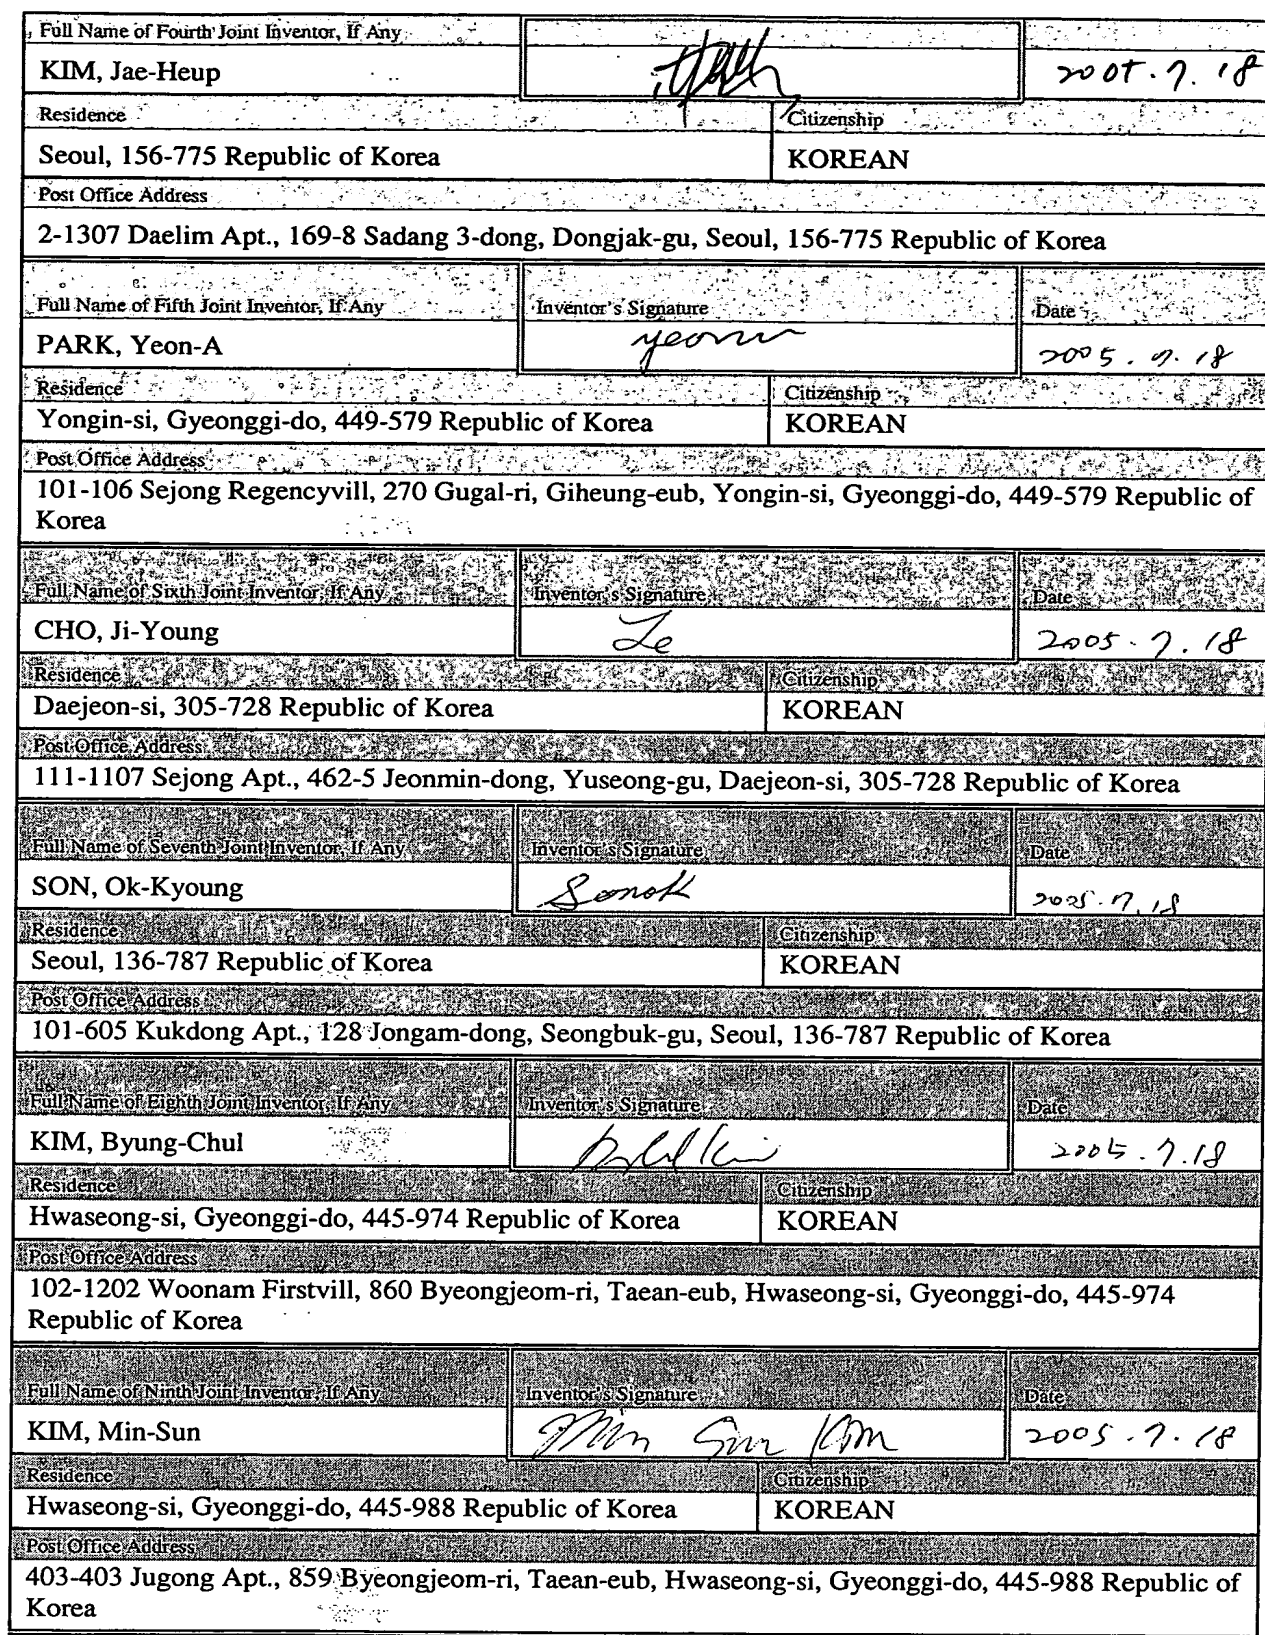 Full Name of Fourth Joint Inventor, If Any
KIM, Jae-Heup 2005.7.18
Residence Citizenship
Seoul, 156-775 Republic of Korea KOREAN
Post Office Address
2-1307 Daelim Apt., 169-8 Sadang 3-dong, Dongjak-gu, Seoul, 156-775 Republic of Korea
Full Name of Fifth Joint Inventor, If Any Inventor's Signature Date
PARK, Yeon-A 2005.7.18
Residence Citizenship
Yongin-si, Gyeonggi-do, 449-579 Republic of Korea KOREAN
Post Office Address
101-106 Sejong Regencyvill, 270 Gugal-ri, Giheung-eub, Yongin-si, Gyeonggi-do, 449-579 Republic of
Korea
Full Name of Sixth Joint Inventor, If Any Inventor's Signature Date
CHO, Ji-Young 2005.7.18
Residence Citizenship
Daejeon-si, 305-728 Republic of Korea KOREAN
Post Office Address
111-1107 Sejong Apt., 462-5 Jeonmin-dong, Yuseong-gu, Daejeon-si, 305-728 Republic of Korea
Full Name of Seventh Joint Inventor, If Any Inventor's Signature Date
SON, Ok-Kyoung Sonok 2005.7.18
Residence Citizenship
Seoul, 136-787 Republic of Korea KOREAN
Post Office Address
101-605 Kukdong Apt., 128 Jongam-dong, Seongbuk-gu, Seoul, 136-787 Republic of Korea
Full Name of Eighth Joint Inventor, If Any Inventor's Signature Date
KIM, Byung-Chul 2005.7.18
Residence Citizenship
Hwaseong-si, Gyeonggi-do, 445-974 Republic of Korea KOREAN
Post Office Address
102-1202 Woonam Firstvill, 860 Byeongjeom-ri, Taean-eub, Hwaseong-si, Gyeonggi-do, 445-974
Republic of Korea
Full Name of Ninth Joint Inventor, If Any Inventor's Signature Date
KIM, Min-Sun Min Sun Kim 2005.7.18
Residence Citizenship
Hwaseong-si, Gyeonggi-do, 445-988 Republic of Korea KOREAN
Post Office Address
403-403 Jugong Apt., 859 Byeongjeom-ri, Taean-eub, Hwaseong-si, Gyeonggi-do, 445-988 Republic of
Korea